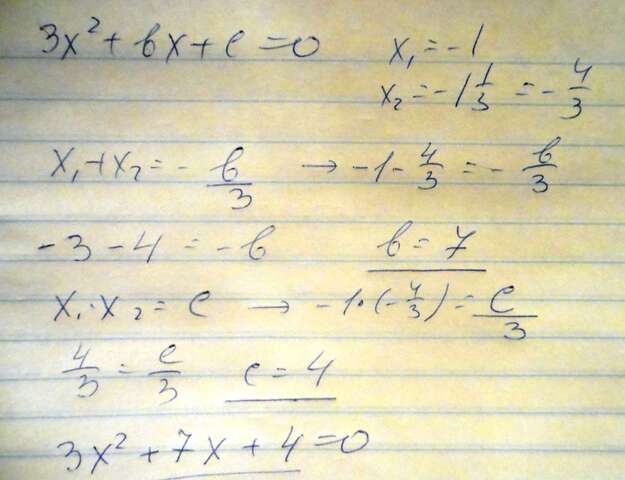 3x² + bx + c = 0   x₁ = -1
x₂ = -1 1/3 = - 4/3
x₁ + x₂ = - b/3 → -1 - 4/3 = - b/3
-3 - 4 = -b   b = 7
x₁ · x₂ = c → -1 · (- 4/3) = c/3
4/3 = c/3   c = 4
3x² + 7x + 4 = 0